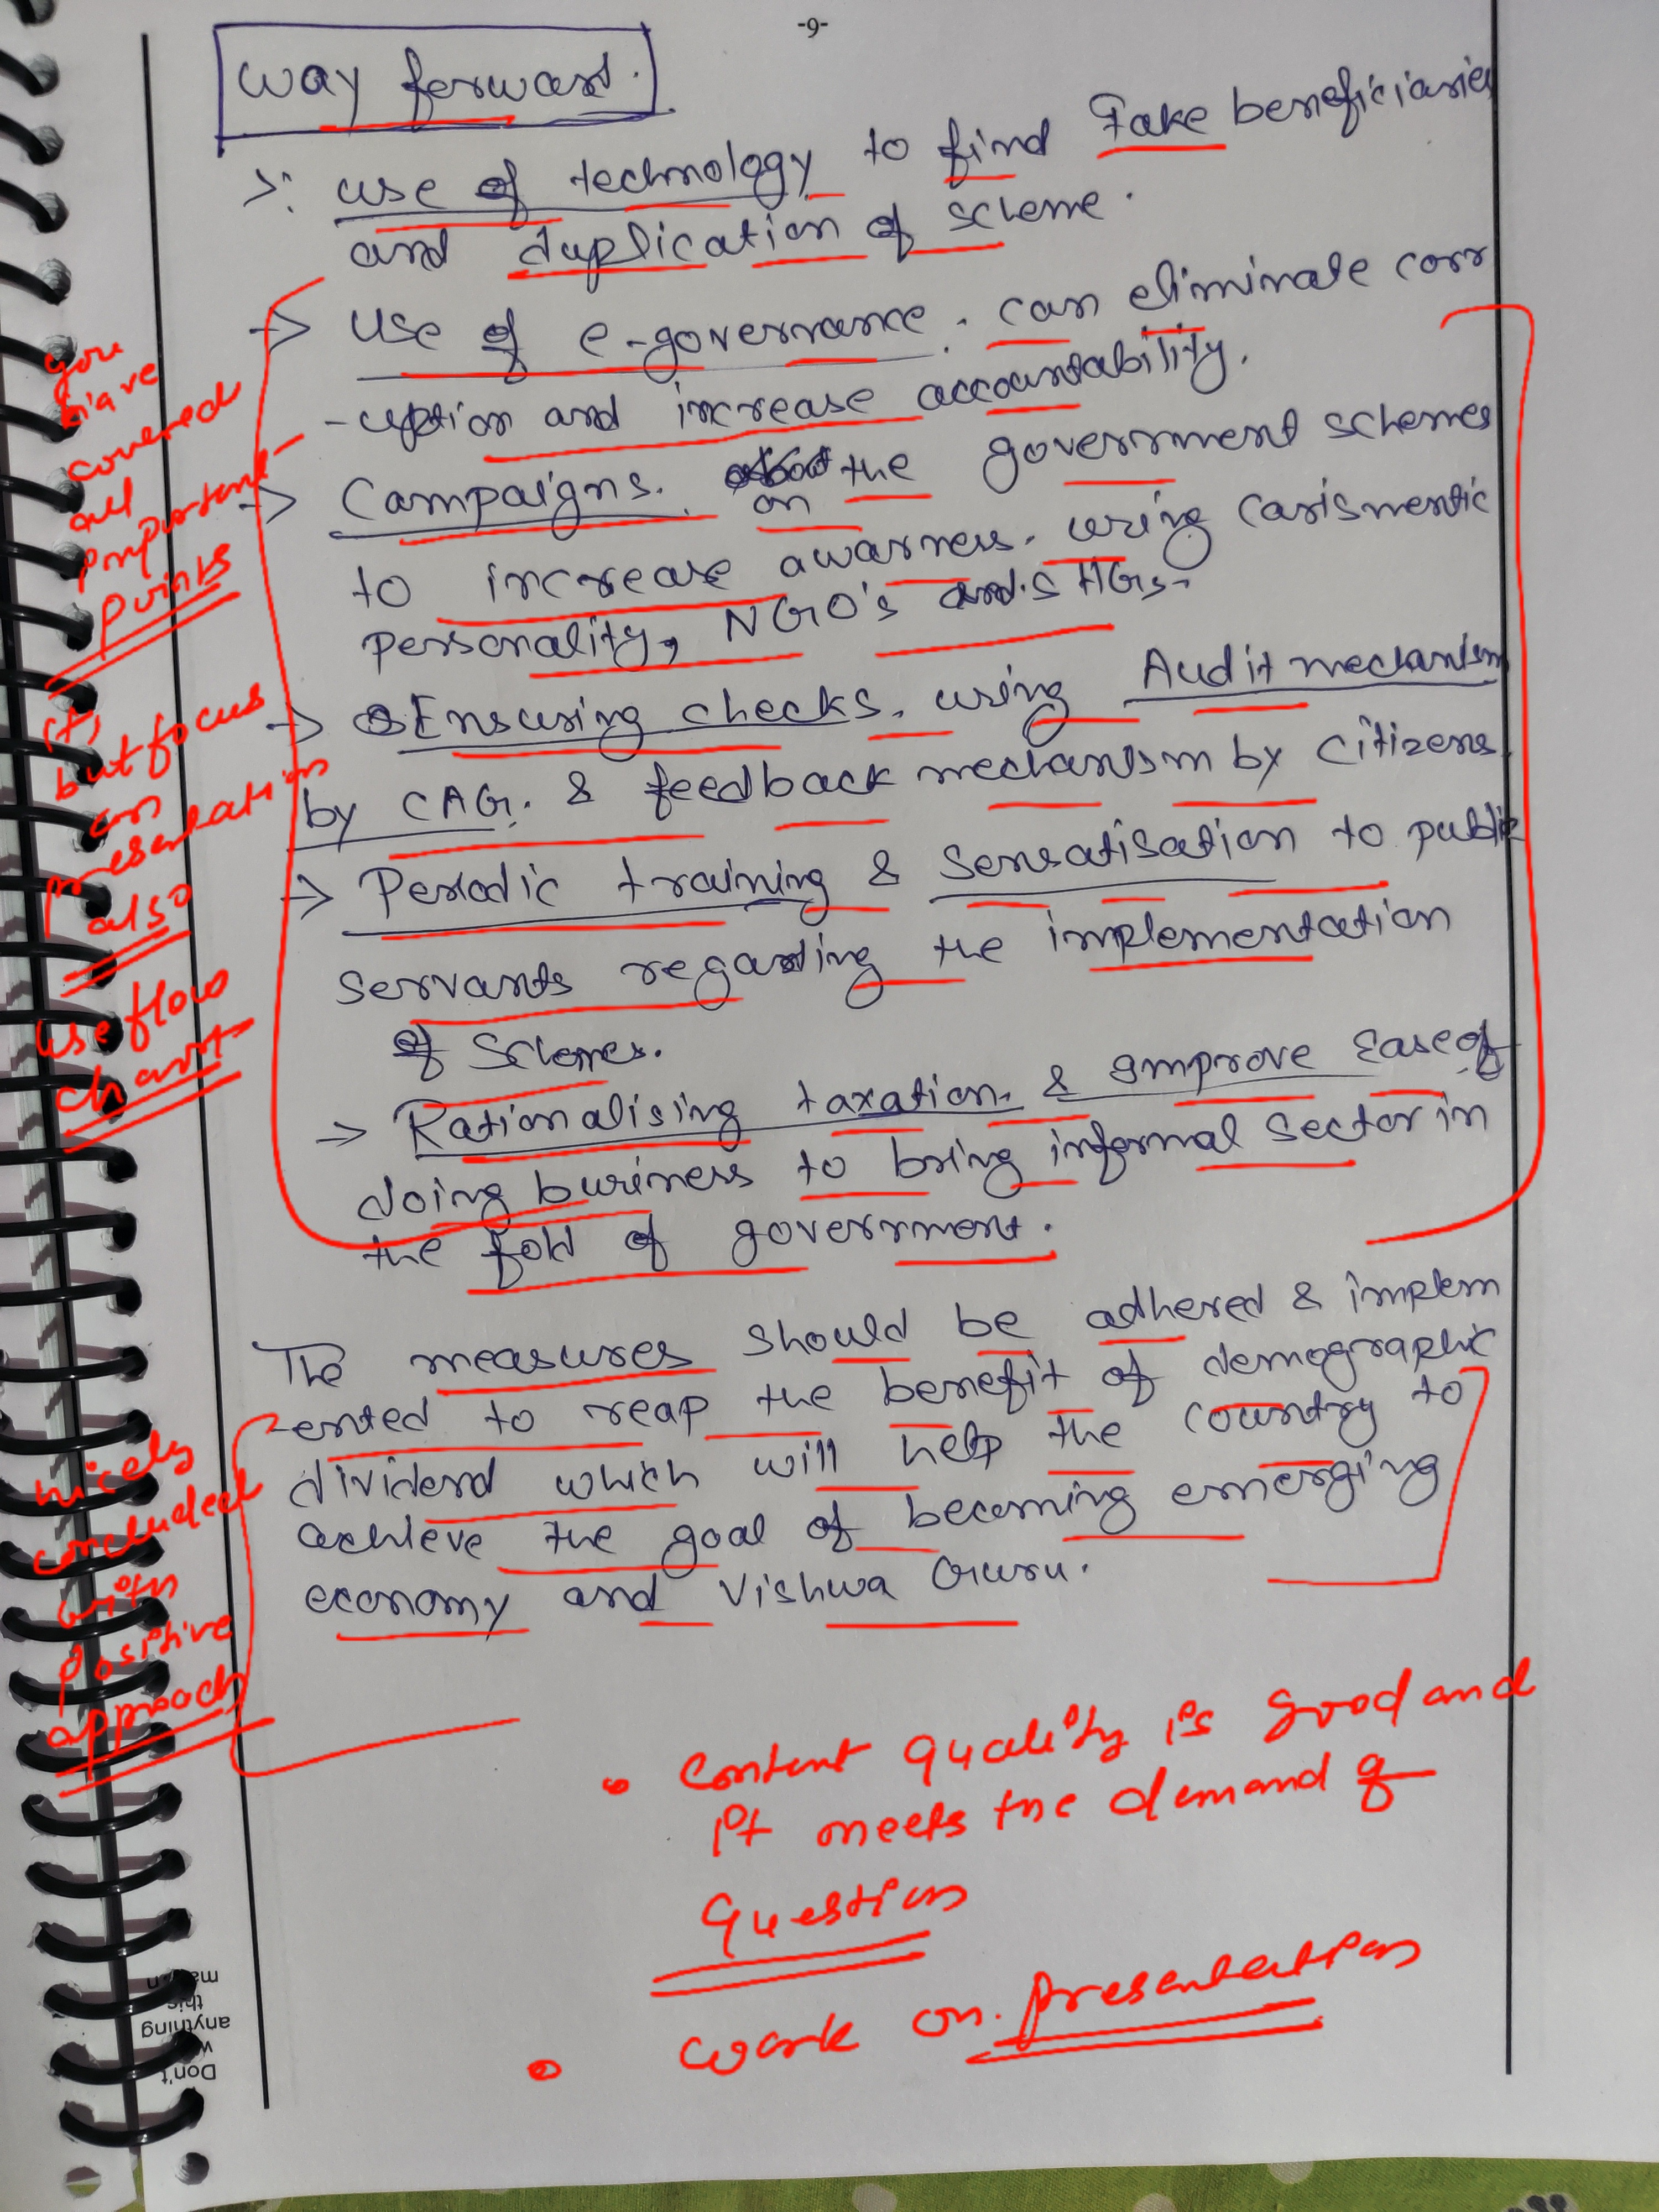 -9-
way forward.
> : use of technology to find Fake beneficiaries
and duplication of scheme.
→ use of e-governance. can eliminate corr
-uption and increase accountability.
→ Campaigns. on the government schemes
to increase awarness. using carismentic
personality, NGO's and SHGs.
→ Ensuring checks, using Audit mechanism
by CAG. & feedback mechanism by citizens.
→ Periodic training & sensatisation to public
servants regarding the implementation
of Schemes.
→ Rationalising taxation. & improve Ease of
doing business to bring informal sector in
the fold of government.
The measures should be adhered & implem
-ented to reap the benefit of demographic
dividend which will help the country to
achieve the goal of becoming emerging
economy and Vishwa Guru.
you
have
covered
all
important
points
(+)
but focus
on
presentation
also
use flow
chart
nicely
concluded
with
positive
approach
• Content quality is good and
it meets the demand of
question
• work on. presentation
Don't
anything
this